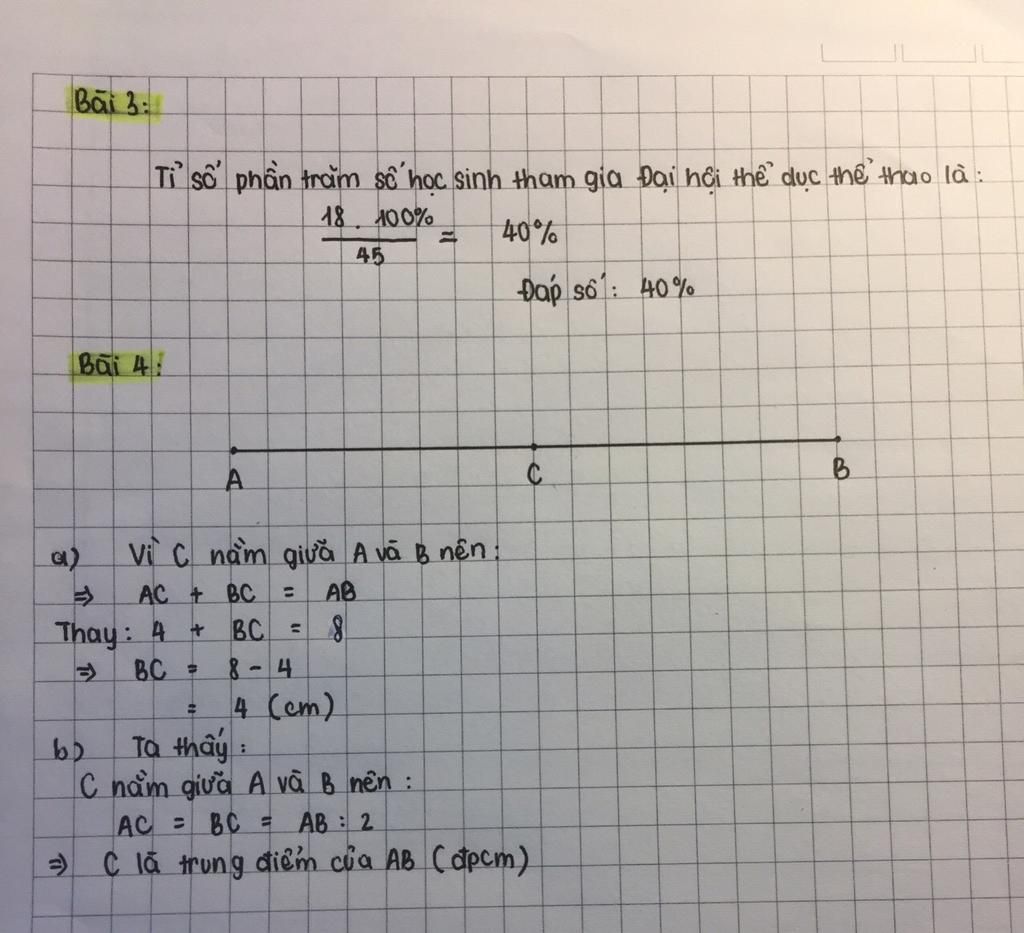 Bài 3:
Tỉ số phần trăm số học sinh tham gia Đại hội thể dục thể thao là:
18 . 100%
45
= 40%
Đáp số: 40%
Bài 4:
A C B
a) Vì C nằm giữa A và B nên:
⇒ AC + BC = AB
Thay: 4 + BC = 8
⇒ BC = 8 - 4
= 4 (cm)
b) Ta thấy:
C nằm giữa A và B nên:
AC = BC = AB : 2
⇒ C là trung điểm của AB (đpcm)